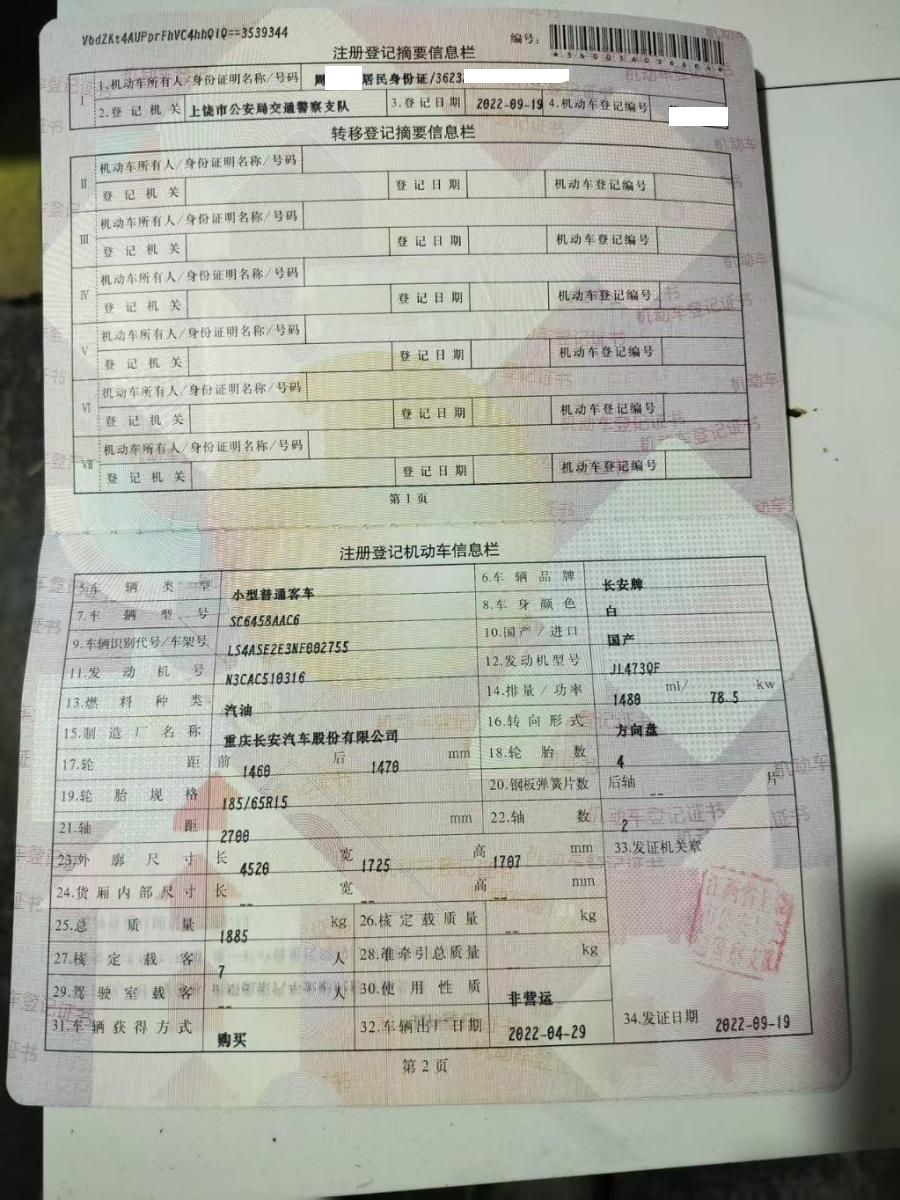 VbdZKt4AUPprFhVC4hhQIQ==3539344
编号:
注册登记摘要信息栏
I 1.机动车所有人/身份证明名称/号码 周 居民身份证/3623
2.登记机关 上饶市公安局交通警察支队 3.登记日期 2022-09-19 4.机动车登记编号
转移登记摘要信息栏
II 机动车所有人/身份证明名称/号码
登记机关 登记日期 机动车登记编号
III 机动车所有人/身份证明名称/号码
登记机关 登记日期 机动车登记编号
IV 机动车所有人/身份证明名称/号码
登记机关 登记日期 机动车登记编号
V 机动车所有人/身份证明名称/号码
登记机关 登记日期 机动车登记编号
VI 机动车所有人/身份证明名称/号码
登记机关 登记日期 机动车登记编号
VII 机动车所有人/身份证明名称/号码
登记机关 登记日期 机动车登记编号
第1页
注册登记机动车信息栏
5.车辆类型 小型普通客车 6.车辆品牌 长安牌
7.车辆型号 SC6458AAC6 8.车身颜色 白
9.车辆识别代号/车架号 LS4ASE2E3NF002755 10.国产/进口 国产
11.发动机号 N3CAC510316 12.发动机型号 JL473QF
13.燃料种类 汽油 14.排量/功率 1480 ml/ 78.5 kw
15.制造厂名称 重庆长安汽车股份有限公司 16.转向形式 方向盘
17.轮距 前 1460 后 1470 mm 18.轮胎数 4
19.轮胎规格 185/65R15 20.钢板弹簧片数 后轴 -- 片
21.轴距 2700 mm 22.轴数 2
23.外廓尺寸 长 4520 宽 1725 高 1707 mm 33.发证机关章
24.货厢内部尺寸 长 -- 宽 -- 高 -- mm
25.总质量 1885 kg 26.核定载质量 -- kg
27.核定载客 7 人 28.准牵引总质量 -- kg
29.驾驶室载客 -- 人 30.使用性质 非营运
31.车辆获得方式 购买 32.车辆出厂日期 2022-04-29 34.发证日期 2022-09-19
第2页